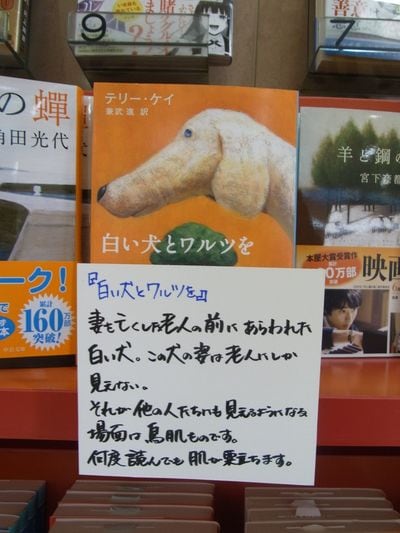 9
7
の蟬
角田光代
テリー・ケイ
兼武進 訳
白い犬とワルツを
羊と鋼の
宮下奈都
本屋大賞受賞作
映画
ーク!
累計
160万部
突破!
『白い犬とワルツを』
妻を亡くした老人の前にあらわれた
白い犬。この犬の姿は老人にしか
見えない。
それが他の人たちにも見えるようになる
場面は鳥肌ものです。
何度読んでも肌が粟立ちます。